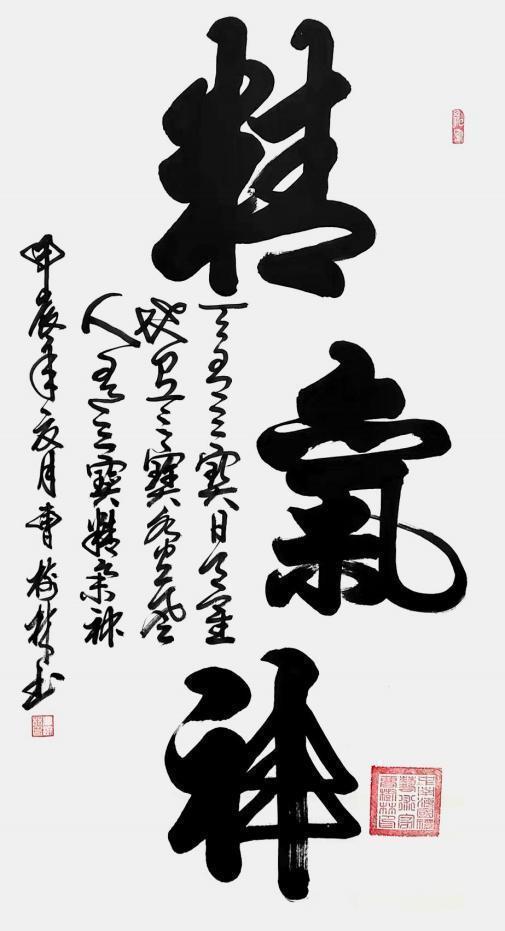 精氣神
天有三寶日月星
地有三寶水火風
人有三寶精氣神
甲辰年夏月曹树林书